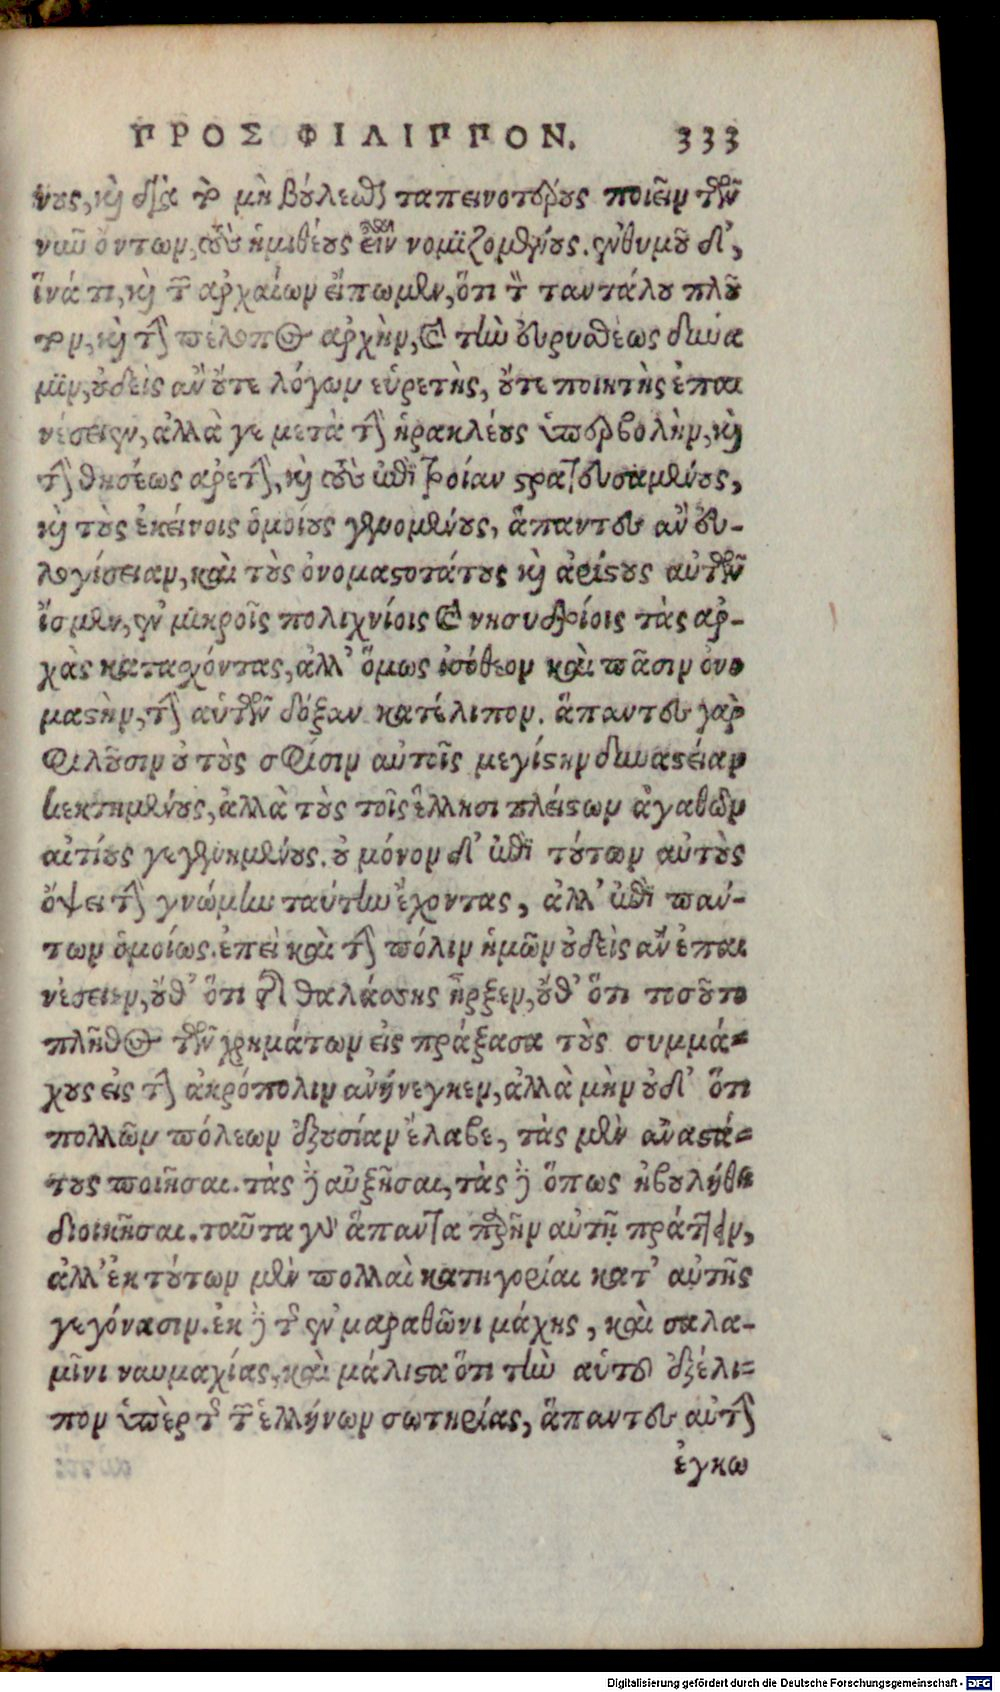 ΠΡΟΣ ΦΙΛΙΠΠΟΝ. 333
νους, καὶ διὰ τὸ μὴ βούλεσθαι ταπεινοτέρους ποιεῖν τῶν
νῦν ὄντων, τοὺς ἡμιθέους εἶναι νομιζομένους. ἐνθυμοῦ δ',
ἵνά τι, καὶ τῶν ἀρχαίων εἴπωμεν, ὅτι τὸν ταντάλου πλοῦ
τον, καὶ τὴν πέλοπος ἀρχὴν, καὶ τὴν εὐρυσθέως δύνα
μιν, οὐδεὶς ἂν οὔτε λόγων εὑρετὴς, οὔτε ποιητὴς ἐπαι
νέσειεν, ἀλλὰ γε μετὰ τὴν ἡρακλέους ὑπερβολὴν, καὶ
τὴν θησέως ἀρετὴν, καὶ τοὺς ἐπὶ τροίαν στρατευσαμένους,
καὶ τοὺς ἐκείνοις ὁμοίους γενομένους, ἅπαντες ἂν εὐ-
λογίσειαν, καὶ τοὺς ὀνομαστοτάτους καὶ ἀρίστους αὐτῶν
ἴσμεν, ἐν μικροῖς πολιχνίοις καὶ νησυδρίοις τὰς ἀρ-
χὰς κατασχόντας, ἀλλ' ὅμως ἰσόθεον καὶ πᾶσιν ὀνο
μαστὴν, τὴν αὑτῶν δόξαν κατέλιπον. ἅπαντες γὰρ
φιλοῦσιν οὐ τοὺς σφίσιν αὐτοῖς μεγίστην δυναστείαν
κεκτημένους, ἀλλὰ τοὺς τοῖς ἕλλησι πλείστων ἀγαθῶν
αἰτίους γεγενημένους. οὐ μόνον δ' ἐπὶ τούτων αὐτοὺς
ὄψει τὴν γνώμην ταύτην ἔχοντας, ἀλλ' ἐπὶ πάν-
των ὁμοίως. ἐπεὶ καὶ τὴν πόλιν ἡμῶν οὐδεὶς ἂν ἐπαι
νέσειεν, οὔθ' ὅτι τῆς θαλάσσης ἦρξεν, οὔθ' ὅτι τοσοῦτο
πλῆθος τῶν χρημάτων εἰς πράξασα τοὺς συμμά-
χους εἰς τὴν ἀκρόπολιν ἀνήνεγκεν, ἀλλὰ μὴν οὐδ' ὅτι
πολλῶν πόλεων ἐξουσίαν ἔλαβε, τὰς μὲν ἀναστά-
τους ποιῆσαι. τὰς δὲ αὐξῆσαι, τὰς δὲ ὅπως ἠβουλήθη
διοικῆσαι. ταῦτα γὰρ ἅπαντα παρῆν αὐτῇ πράττειν,
ἀλλ' ἐκ τούτων μὲν πολλαὶ κατηγορίαι κατ' αὐτῆς
γεγόνασιν. ἐκ δὲ τῆς ἐν μαραθῶνι μάχης, καὶ σαλα-
μῖνι ναυμαχίας, καὶ μάλιστα ὅτι τὴν αὑτῶν ἐξέλι-
πον ὑπὲρ τῆς τῶν ἑλλήνων σωτηρίας, ἅπαντες αὐτὴν
ἐγκω
Digitalisierung gefördert durch die Deutsche Forschungsgemeinschaft - DFG